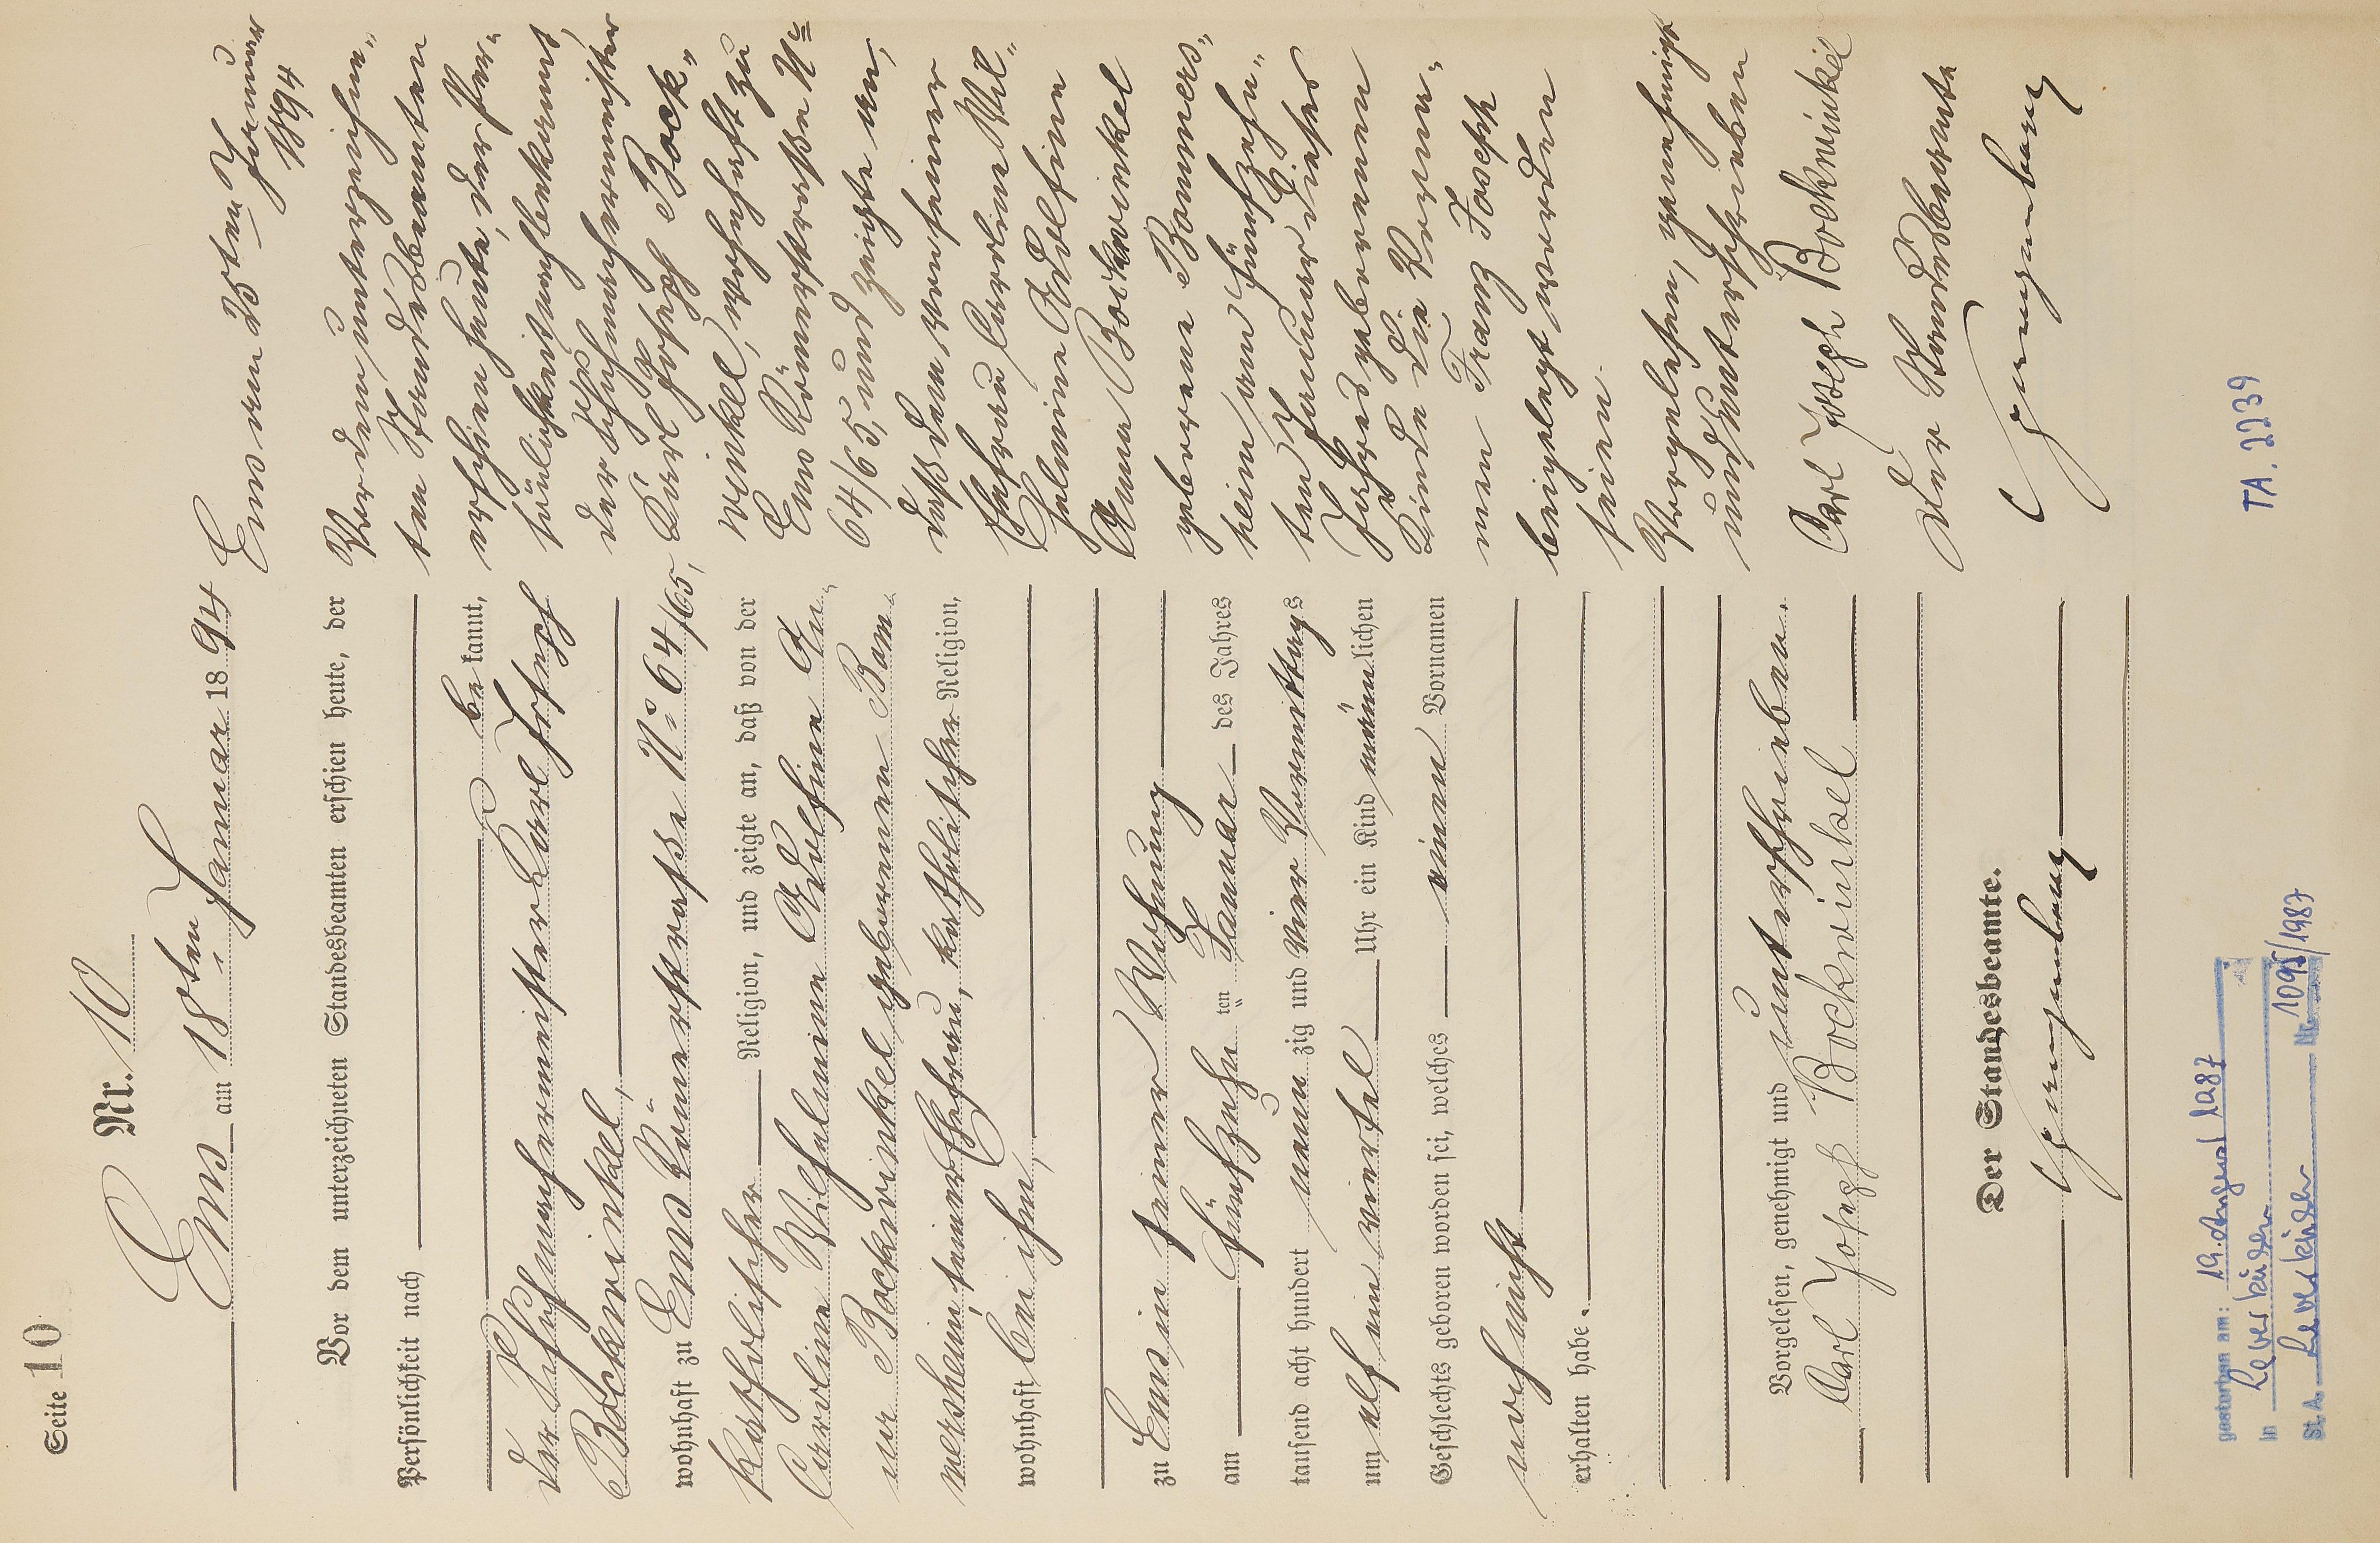 Seite 10
Nr. 10
Ems am 18ten Januar 1894
Vor dem unterzeichneten Standesbeamten erschien heute, der
Persönlichkeit nach
bekannt,
der Schuhmachermeister Carl Joseph
Bockwinkel,
wohnhaft zu Ems Römerstraße No 64/65,
katholischer Religion, und zeigte an, daß von der
Caroline Wilhelmine Adolfine An-
na Bockwinkel geborenen Bom-
mersheim, seiner Ehefrau, katholischer Religion,
wohnhaft bei ihm,
zu Ems in seiner Wohnung
am fünfzehn ten Januar des Jahres
tausend acht hundert neunzig und vier Vormittags
um elf ein viertel Uhr ein Kind männlichen
Geschlechts geboren worden sei, welches einen Vornamen
noch nicht
erhalten habe.
Vorgelesen, genehmigt und unterschrieben.
Carl Joseph Bockwinkel
Der Standesbeamte.
gestorben am: 19. August 1987
in Leverkusen
St. A. Leverkusen Nr. 1091/1987
Ems am 25ten Januar
1894
Vor dem unterzeichne-
ten Standesbeamten
erschien heute, der Per-
sönlichkeit nach bekannt,
der Schuhmachermeister
Carl Joseph Bock-
winkel, wohnhaft zu
Ems Römerstraße No
64/65, und zeigte an,
daß dem von seiner
Ehefrau Caroline Wil-
helmine Adolfine
Anna Bockwinkel
geborene Bommers-
heim am fünfzehn-
ten Januar dieses
Jahres geborenen
Kinde die Vorna-
men Franz Joseph
beigelegt worden
seien.
Vorgelesen, genehmigt
und unterschrieben
Carl Joseph Bockwinkel
Der Standesbeamte
TA. 2239